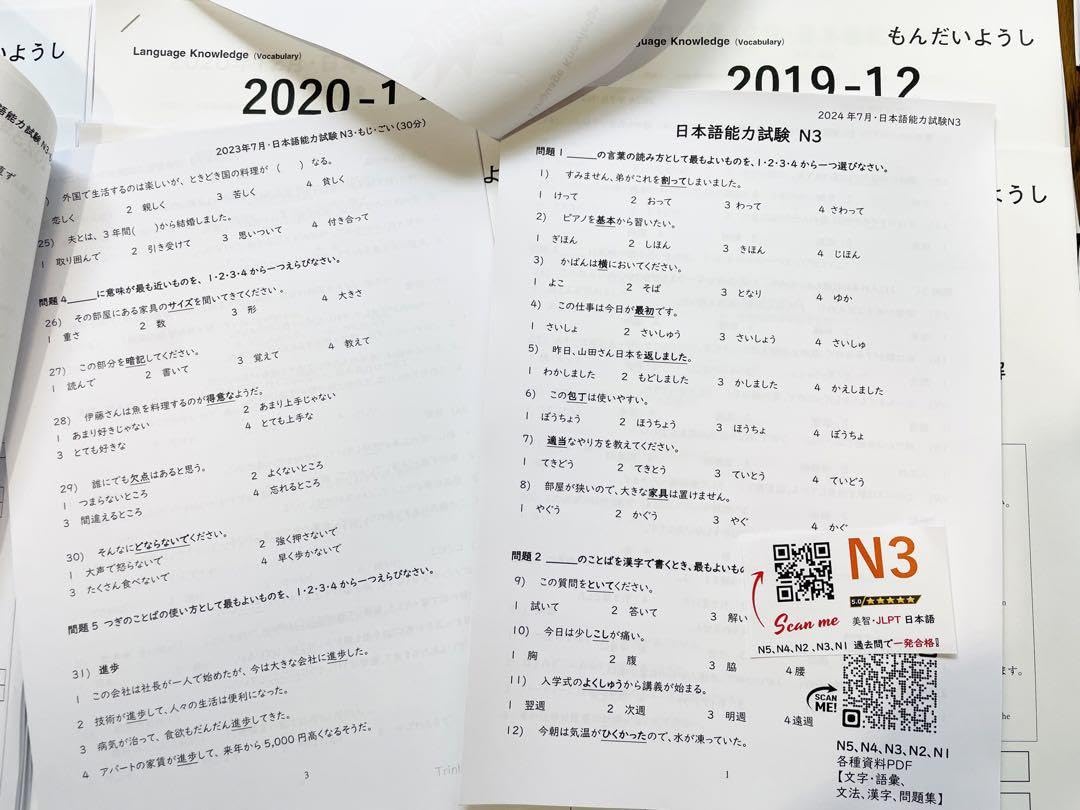 いようし
Language Knowledge (Vocabulary)
2020-1
guage Knowledge (Vocabulary)
もんだいようし
2019-12
ようし
2023年7月・日本語能力試験N3・もじ・ごい(30分)
外国で生活するのは楽しいが、ときどき国の料理が ( ) なる。
恋しく 2 親しく 3 苦しく 4 貧しく
25) 夫とは、3年間( )から結婚しました。
1 取り囲んで 2 引き受けて 3 思いついて 4 付き合って
問題4_____に意味が最も近いものを、1・2・3・4から一つえらびなさい。
26) その部屋にある家具のサイズを聞いてきてください。
1 重さ 2 数 3 形 4 大きさ
27) この部分を暗記してください。
1 読んで 2 書いて 3 覚えて 4 教えて
28) 伊藤さんは魚を料理するのが得意なようだ。
1 あまり好きじゃない 2 あまり上手じゃない
3 とても好きな 4 とても上手な
29) 誰にでも欠点はあると思う。
1 つまらないところ 2 よくないところ
3 間違えるところ 4 忘れるところ
30) そんなにどならないでください。
1 大声で怒らないで 2 強く押さないで
3 たくさん食べないで 4 早く歩かないで
問題5 つぎのことばの使い方として最もよいものを、1・2・3・4から一つえらびなさい。
31) 進歩
1 この会社は社長が一人で始めたが、今は大きな会社に進歩した。
2 技術が進歩して、人々の生活は便利になった。
3 病気が治って、食欲もだんだん進歩してきた。
4 アパートの家賃が進歩して、来年から5,000円高くなるそうだ。
3
2024年7月・日本語能力試験N3
日本語能力試験 N3
問題1 _____の言葉の読み方として最もよいものを、1・2・3・4から一つ選びなさい。
1) すみません、弟がこれを割ってしまいました。
1 けって 2 おって 3 わって 4 さわって
2) ピアノを基本から習いたい。
1 ぎほん 2 しほん 3 きほん 4 じほん
3) かばんは横においてください。
1 よこ 2 そば 3 となり 4 ゆか
4) この仕事は今日が最初です。
1 さいしょ 2 さいしゅう 3 さいしょう 4 さいしゅ
5) 昨日、山田さん日本を返しました。
1 わかしました 2 もどしました 3 かしました 4 かえしました
6) この包丁は使いやすい。
1 ぼうちょう 2 ほうちょう 3 ほうちょ 4 ぼうちょ
7) 適当なやり方を教えてください。
1 てきどう 2 てきとう 3 ていとう 4 ていどう
8) 部屋が狭いので、大きな家具は置けません。
1 やぐう 2 かぐう 3 やぐ 4 かぐ
問題2 _____のことばを漢字で書くとき、最もよいもの
9) この質問をといてください。
1 試いて 2 答いて 3 解い
10) 今日は少しこしが痛い。
1 胸 2 腹 3 脇 4 腰
11) 入学式のよくしゅうから講義が始まる。
1 翌週 2 次週 3 明週 4 遠週
12) 今朝は気温がひくかったので、水が凍っていた。
1
N3
5.0/★★★★★
Scan me
美智・JLPT 日本語
N5、N4、N2、N3、N1 過去問で一発合格
SCAN ME!
N5、N4、N3、N2、N1
各種資料PDF
【文字・語彙、
文法、漢字、問題集】